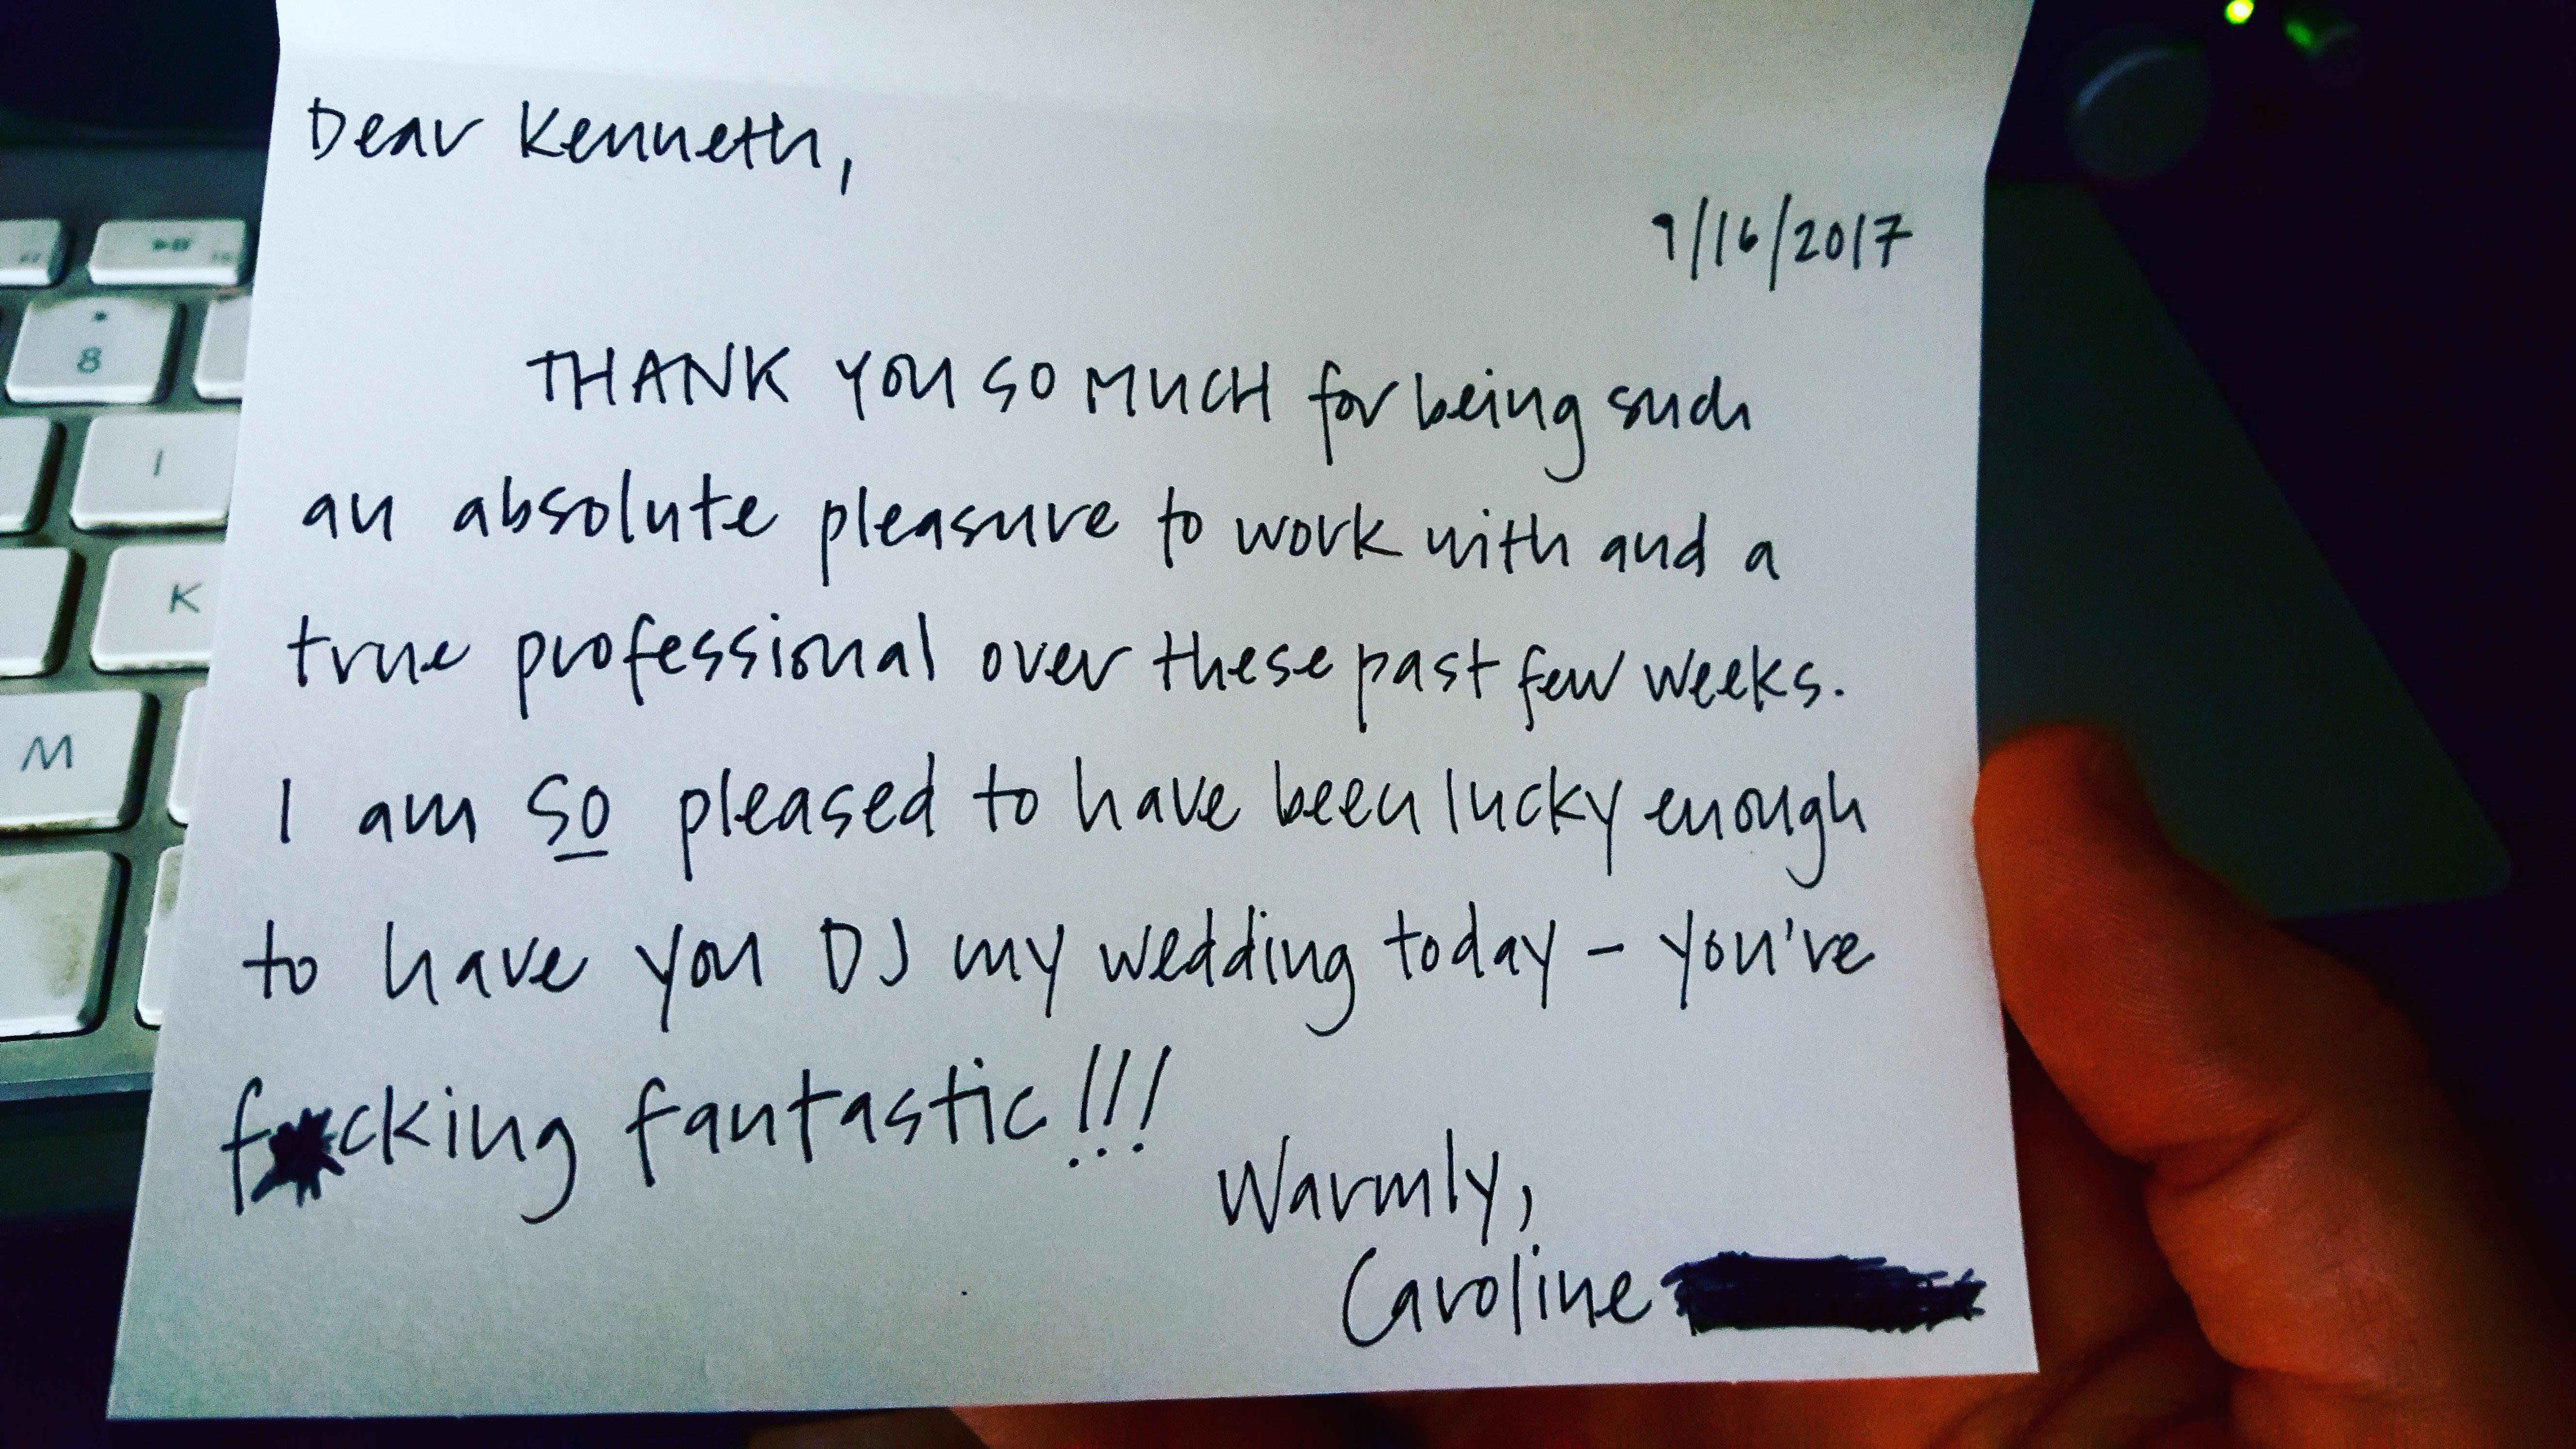 Dear Kenneth,
9/16/2017
THANK YOU SO MUCH for being such
an absolute pleasure to work with and a
true professional over these past few weeks.
I am so pleased to have been lucky enough
to have you DJ my wedding today - you've
f*cking fantastic!!!
Warmly,
Caroline
8
I
K
M